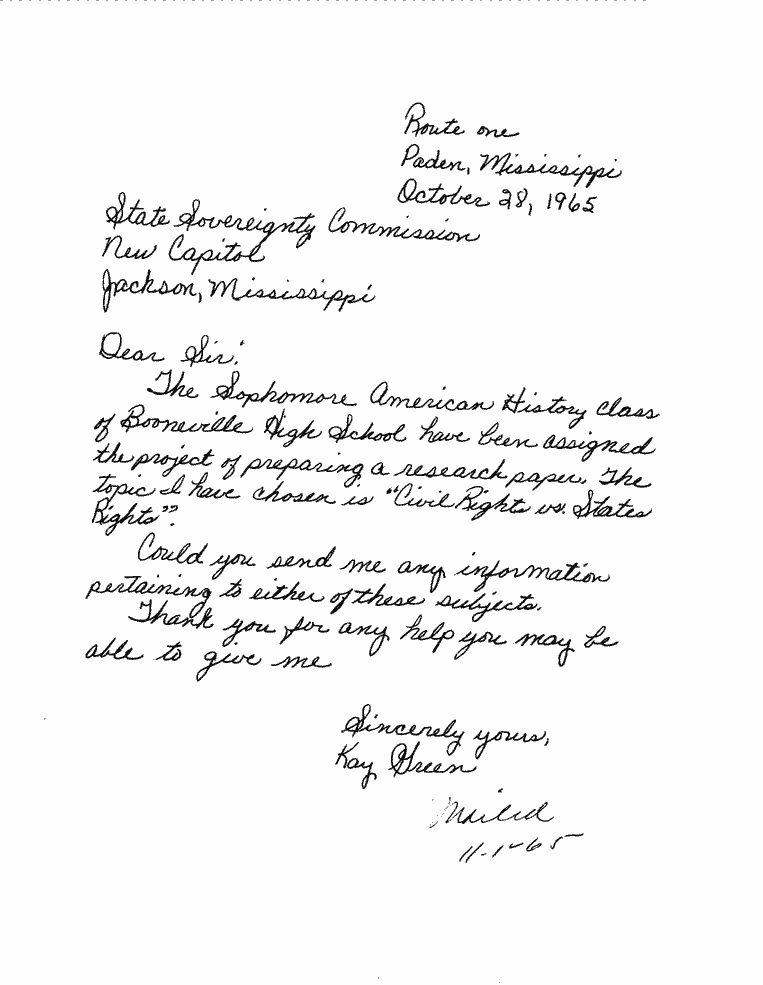 Route one
Paden, Mississippi
October 28, 1965
State Sovereignty Commission
New Capitol
Jackson, Mississippi
Dear Sir:
The Sophomore American History class
of Booneville High School have been assigned
the project of preparing a research paper. The
topic I have chosen is "Civil Rights vs. States
Rights".
Could you send me any information
pertaining to either of these subjects.
Thank you for any help you may be
able to give me
Sincerely yours,
Kay Green
Mailed
11-1-65